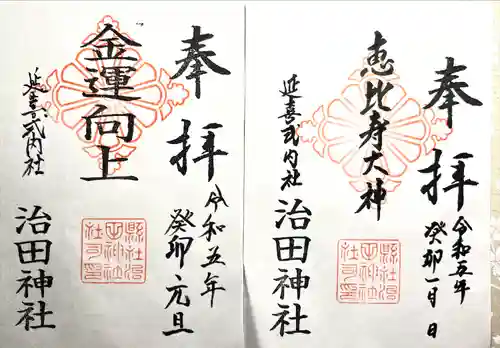 奉拝
令和五年
癸卯・元旦
金運向上
延喜式内社
治田神社
奉拝
令和五年
癸卯一月 日
恵比寿大神
延喜式内社
治田神社